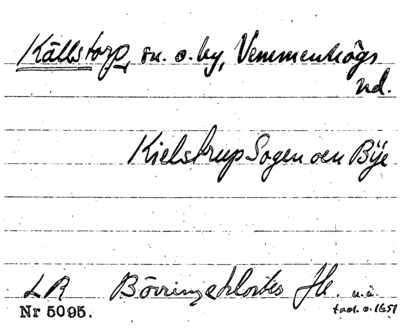 Källstorp, sn. o. by, Vemmenhögs
hd.
Kielstrup Sogen oen Bÿe
LR Börringeklosters Jb. u.å.
Nr 5095. trol. o. 1651